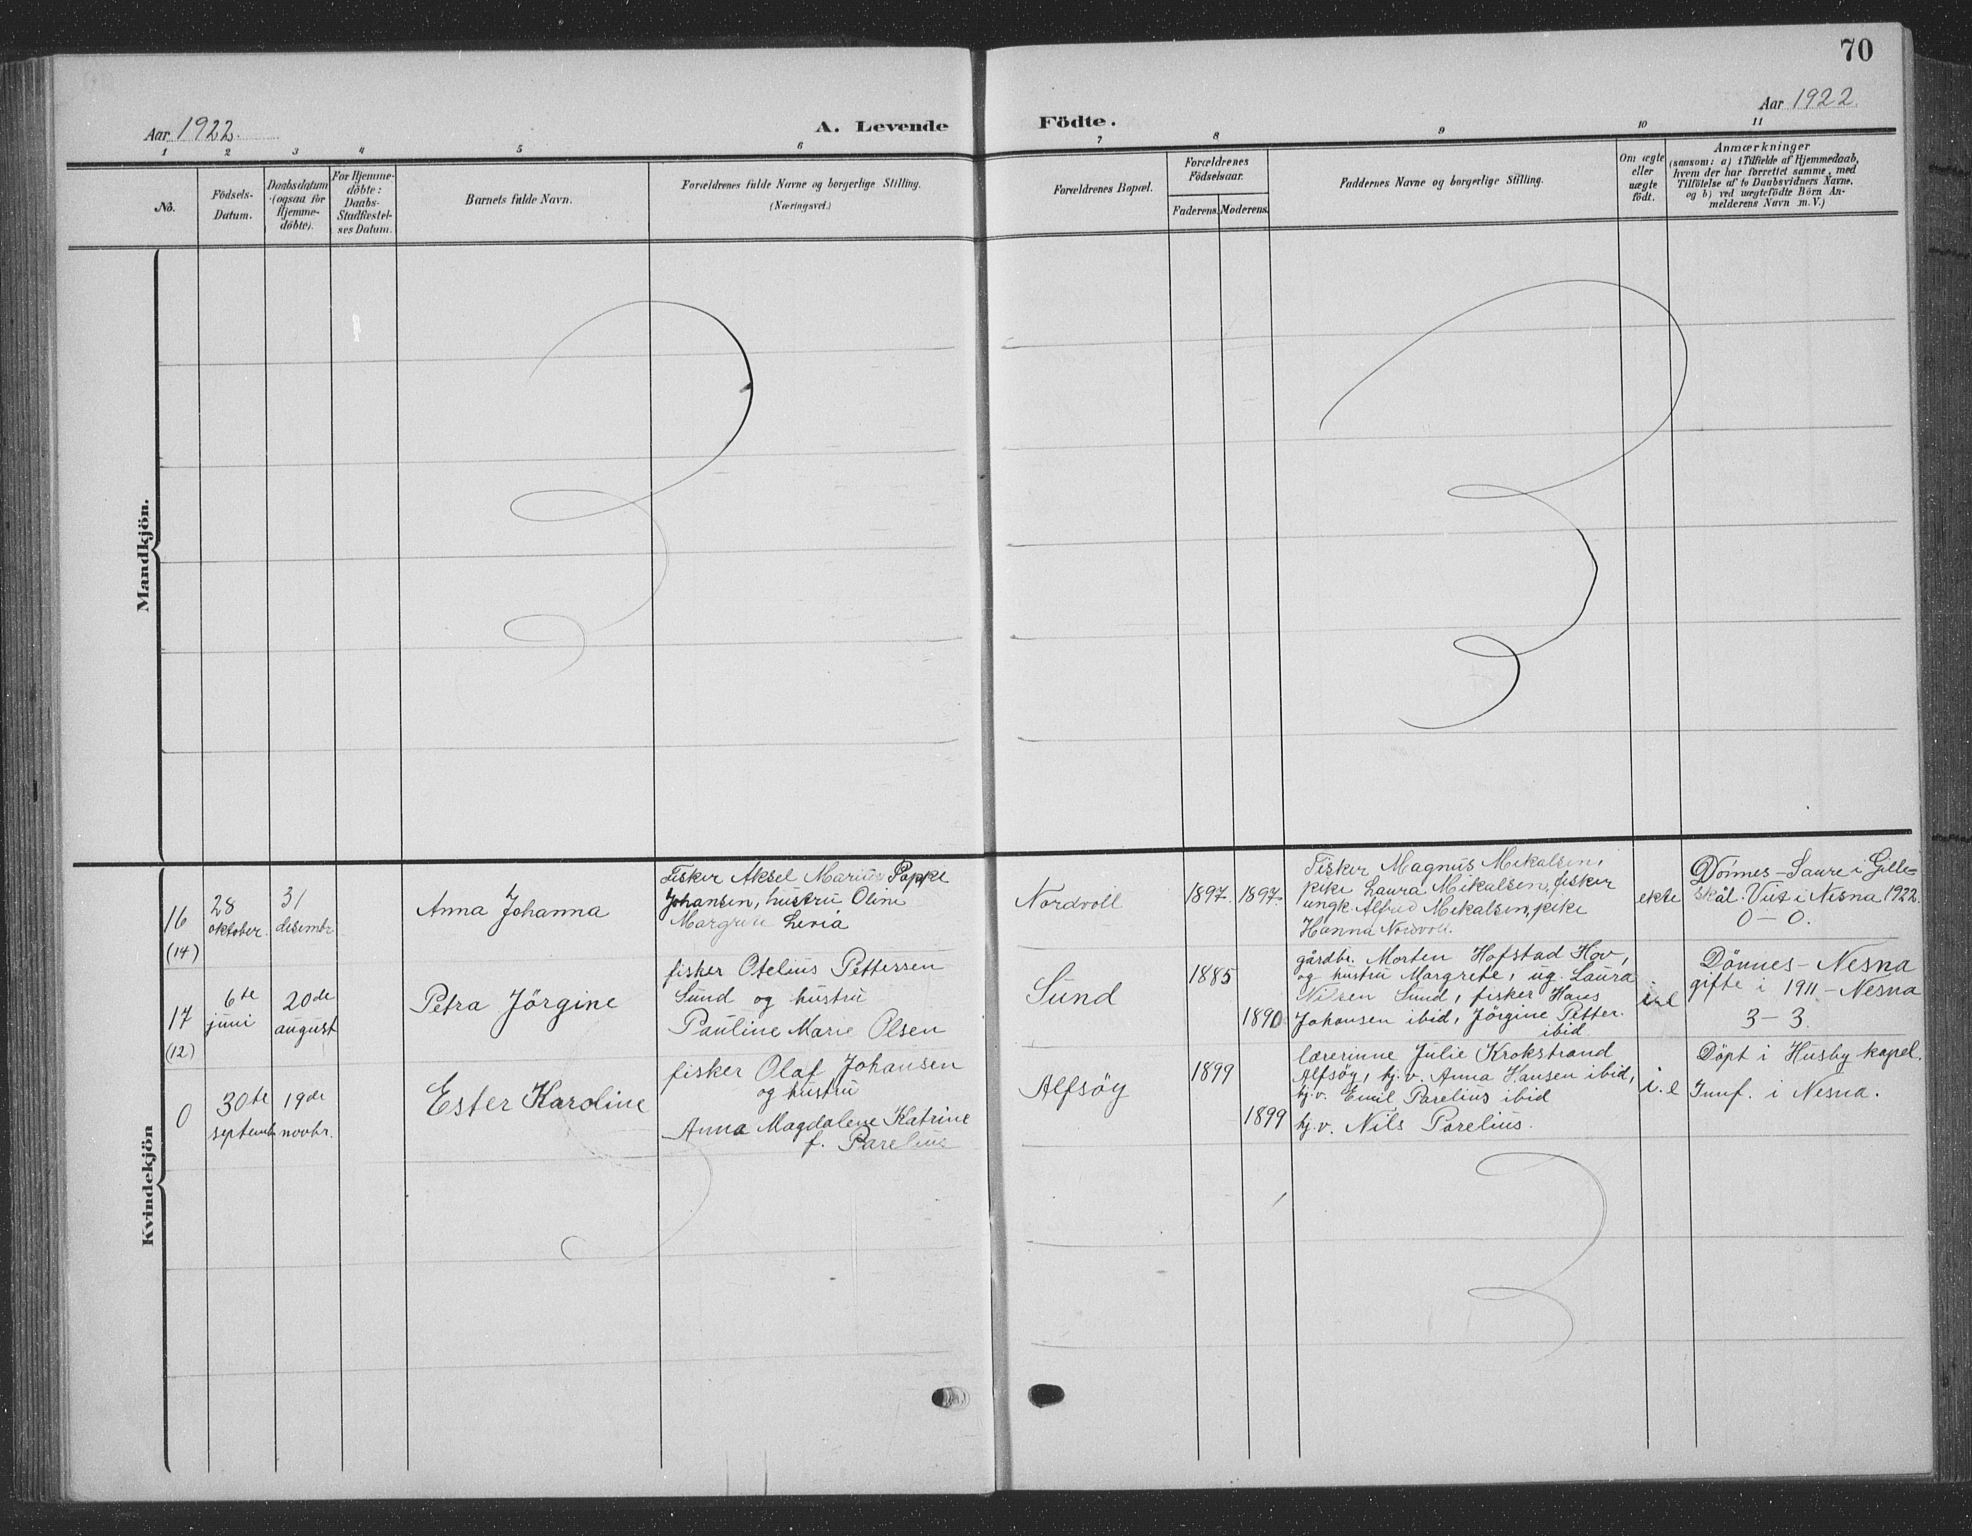 70
Aar 1922.
A. Levende
Födte.
Aar 1922.
1 2 3 4 5 6 7 8 9 10 11
No.
Födsels-
Datum.
Daabsdatum
(ogsaa for
Hjemme-
döbte).
For Hjemme-
döbte:
Daabs-
Stadfæstel-
ses Datum.
Barnets fulde Navn.
Forældrenes fulde Navne og borgerlige Stilling.
(Næringsvei.)
Forældrenes Bopæl.
Forældrenes
Födselsaar.
Faderens. Moderens.
Faddernes Navne og borgerlige Stilling.
Om ægte
eller
uægte
födt.
Anmærkninger
(saasom: a) i Tilfælde af Hjemmedaab,
hvem der har forrettet samme, med
Tilföielse af to Daabsvidners Navne,
og b) ved uægtefödte Börn An-
melderens Navn m. V.)
Mandkjön.
Kvindekjön
16
(14)
28
oktober.
31
desembr
Anna Johanna
Fisker Aksel Marius Poppe
Johansen, hustru Oline
Margrete Levia
Nordvoll
1897. 1897.
Fisker Magnus Mikalsen,
pike Laura Mikalsen, fisker
ungk Alfred Mikalsen, pike
Hanna Nordvoll.
ekte
Dönnes - Saura i Gilde-
skål. Viet i Nesna 1922.
0 - 0.
17
(12)
6te
juni
20de
august
Petra Jörgine
fisker Otelius Pettersen
Sund og hustru
Pauline Marie Olsen
Sund
1885
1890
gårdbr. Morten Hofstad Hov,
og hustru Margrete, ug. Laura
Nilsen Sund, fisker Hans
Johansen ibid, Jörgine Petter.
ibid
i.e
Dönnes - Nesna
gifte i 1911 - Nesna
3 - 3.
0
30te
septemb.
19de
novbr.
Ester Karoline
fisker Olaf Johansen
og hustru
Anna Magdalene Katrine
f. Parelius
Alfsöy
1899
1899
lærerinne Julie Krokstrand
Alfsöy, kj.v. Anna Hansen ibid,
kj.v. Emil Parelius ibid
kj.v. Nils Parelius.
i.e
Döpt i Husby kapel.
Innf. i Nesna.